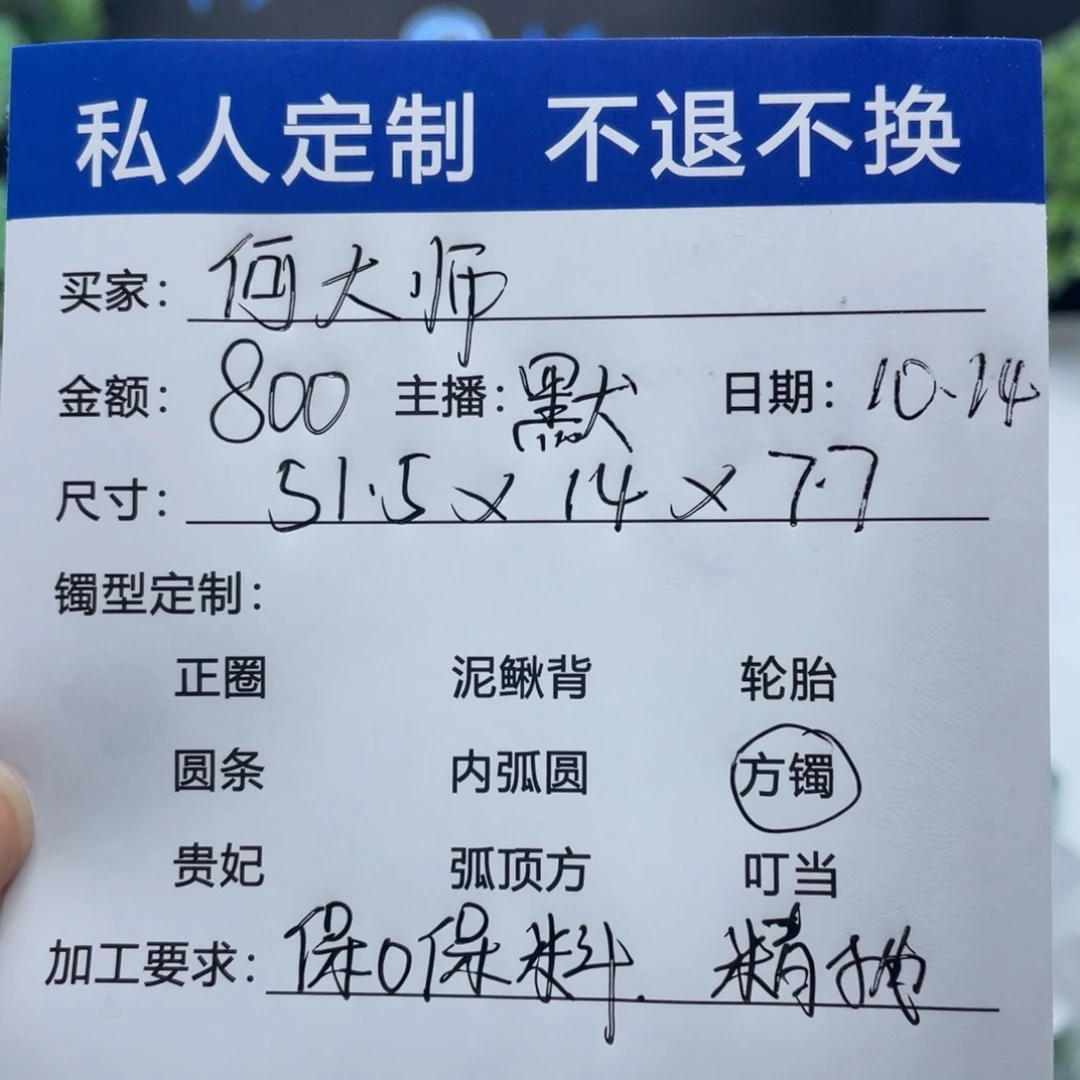 私人定制 不退不换
买家：何大师
金额：800 主播：默 日期：10.14
尺寸：51.5×14×7.7
镯型定制：
正圈 泥鳅背 轮胎
圆条 内弧圆 方镯
贵妃 弧顶方 叮当
加工要求：保口保料.精抛